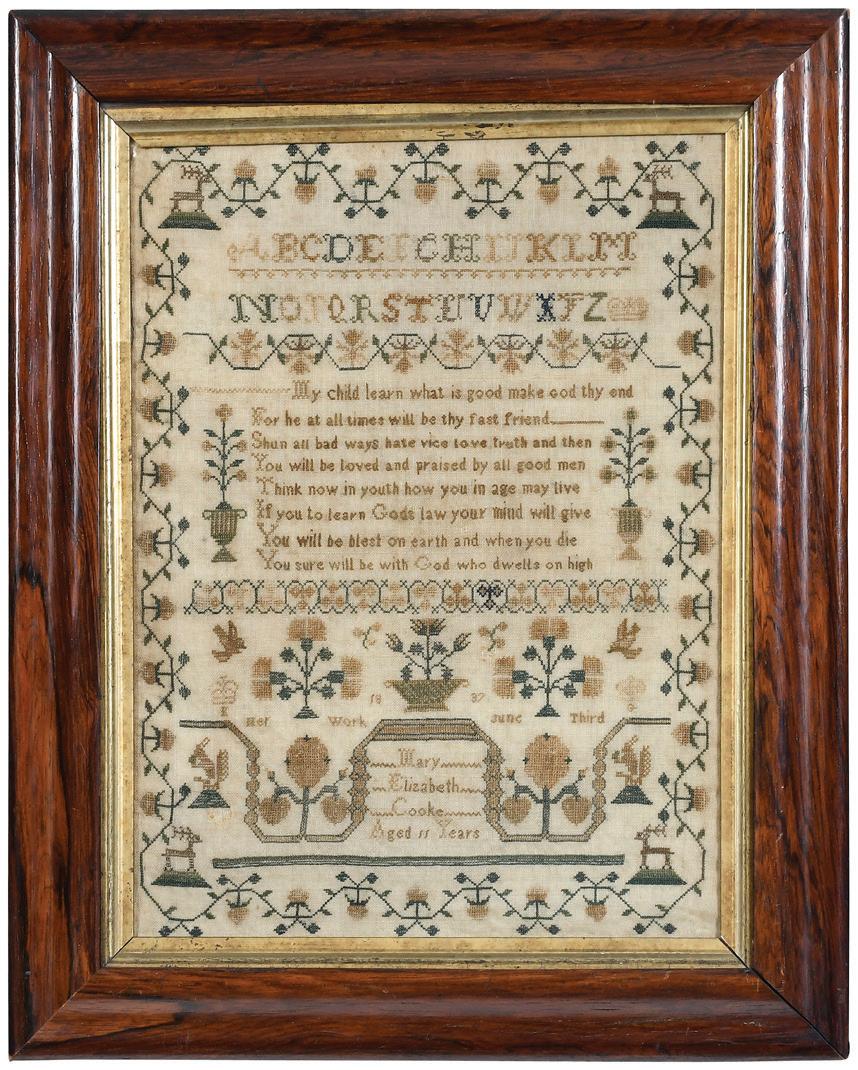 ABCDEFGHIJKLM
NOPQRSTUVWXYZ
My child learn what is good make God thy end
For he at all times will be thy fast friend
Shun all bad ways hate vice love truth and then
You will be loved and praised by all good men
Think now in youth how you in age may live
If you to learn Gods law your mind will give
You will be blest on earth and when you die
You sure will be with God who dwells on high
18 37
Her Work June Third
Mary
Elizabeth
Cooke
Aged 11 Years